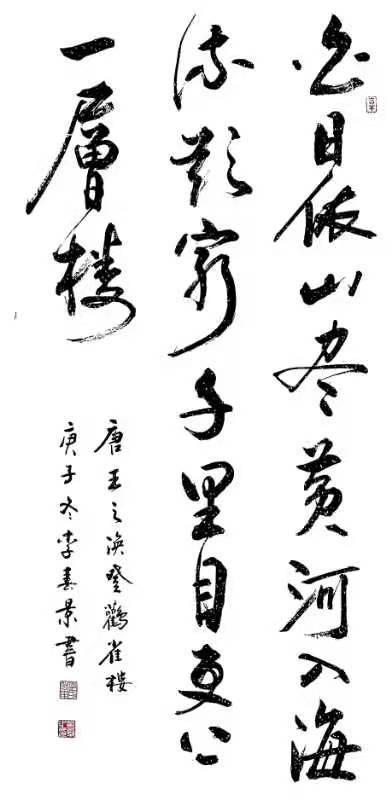 白日依山尽黄河入海
流欲穷千里目更上
一層楼
唐王之涣登鸛雀楼
庚子冬李春景書